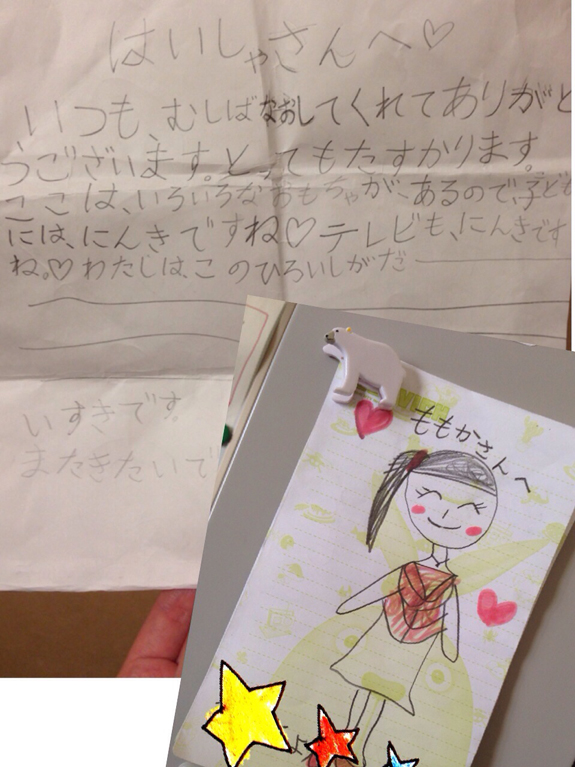 はいしゃさんへ♡
いつも、むしばなおしてくれてありがと
うございます。とってもたすかります。
ここは、いろいろなおもちゃが、あるので、子ども
には、にんきですね♡テレビも、にんきです
ね。♡わたしは、このひろいしがだ
いすきです。
またきたいで
ももかさんへ